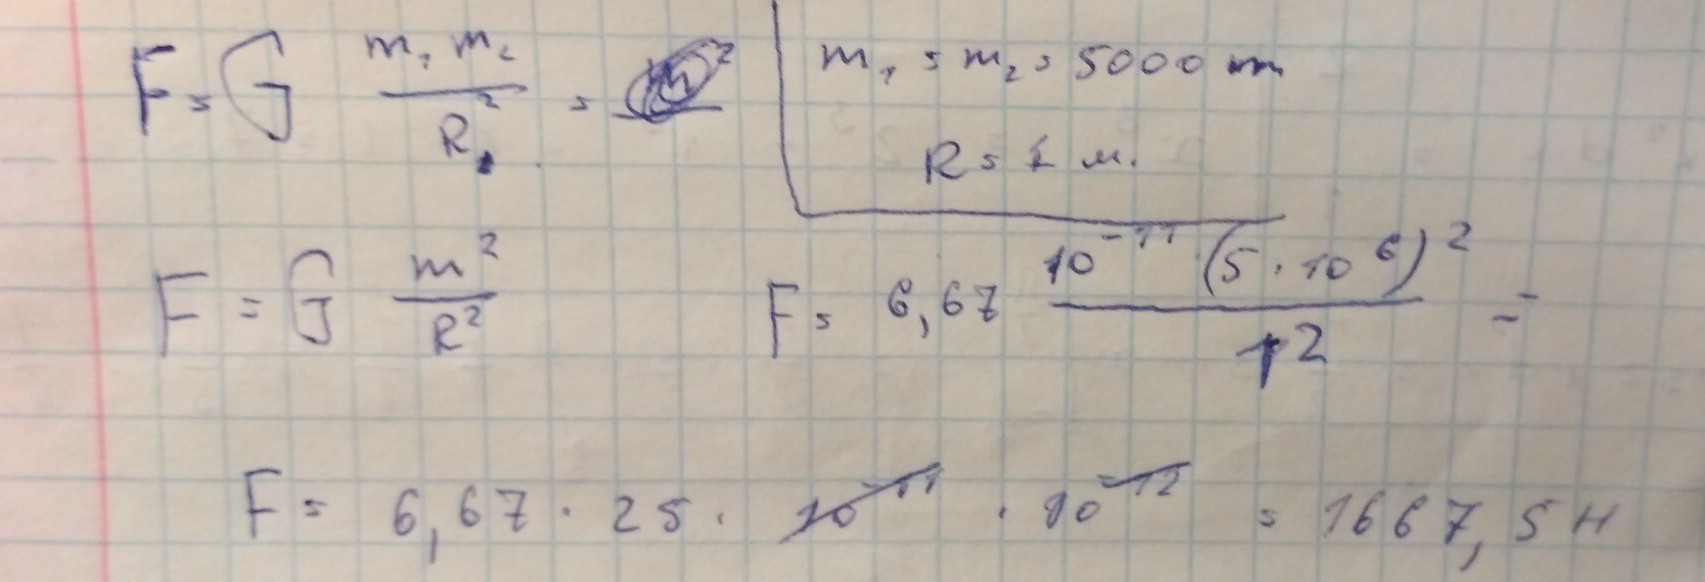 F = G m₁ m₂ / R² =
m₁ = m₂ = 5000 т
R = 1 м.
F = G m² / R²
F = 6,67 10⁻¹¹ (5 · 10⁶)² / 1² =
F = 6,67 · 25 · 10⁻¹¹ · 10¹² = 1667,5 Н